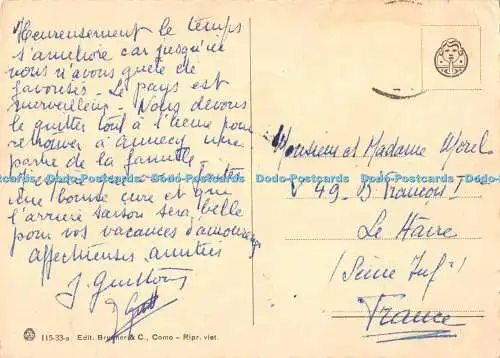 Heureusement le temps
s'améliore car jusqu'ici
nous n'avons guère été
favorisés. Le pays est
merveilleux. Nous devons
le quitter tout à l'heure pour
retrouver à Annecy une
partie de la famille
une bonne cure et que
l'arrière saison sera belle
pour vos vacances d'amoureux
affectueuses amitiés
J.
Monsieur et Madame Morel
49 - B François I
Le Havre
(Seine Inf^e)
France
115-33-a Edit. Brunner & C., Como - Ripr. viet.
Dodo-Postcards